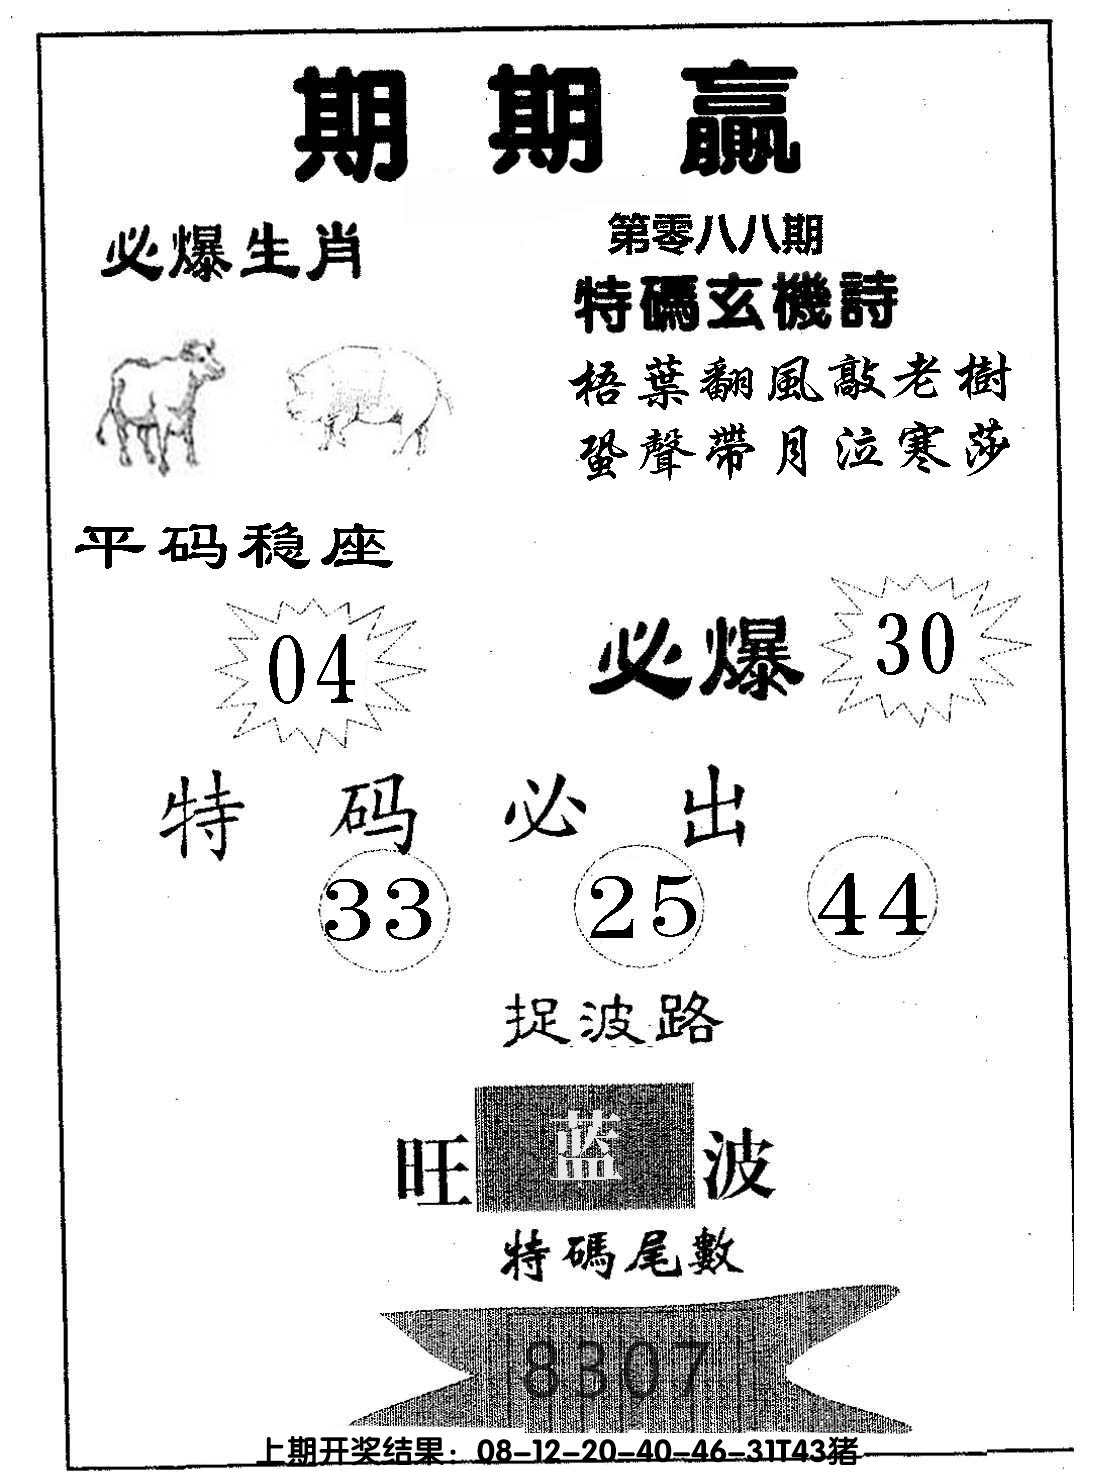 期期贏
必爆生肖
第零八八期
特碼玄機詩
梧葉翻風敲老樹
蛩聲帶月泣寒莎
平码稳座
04
必爆
30
特码必出
33 25 44
捉波路
旺蓝波
特碼尾數
8307
上期开奖结果：08-12-20-40-46-31T43猪